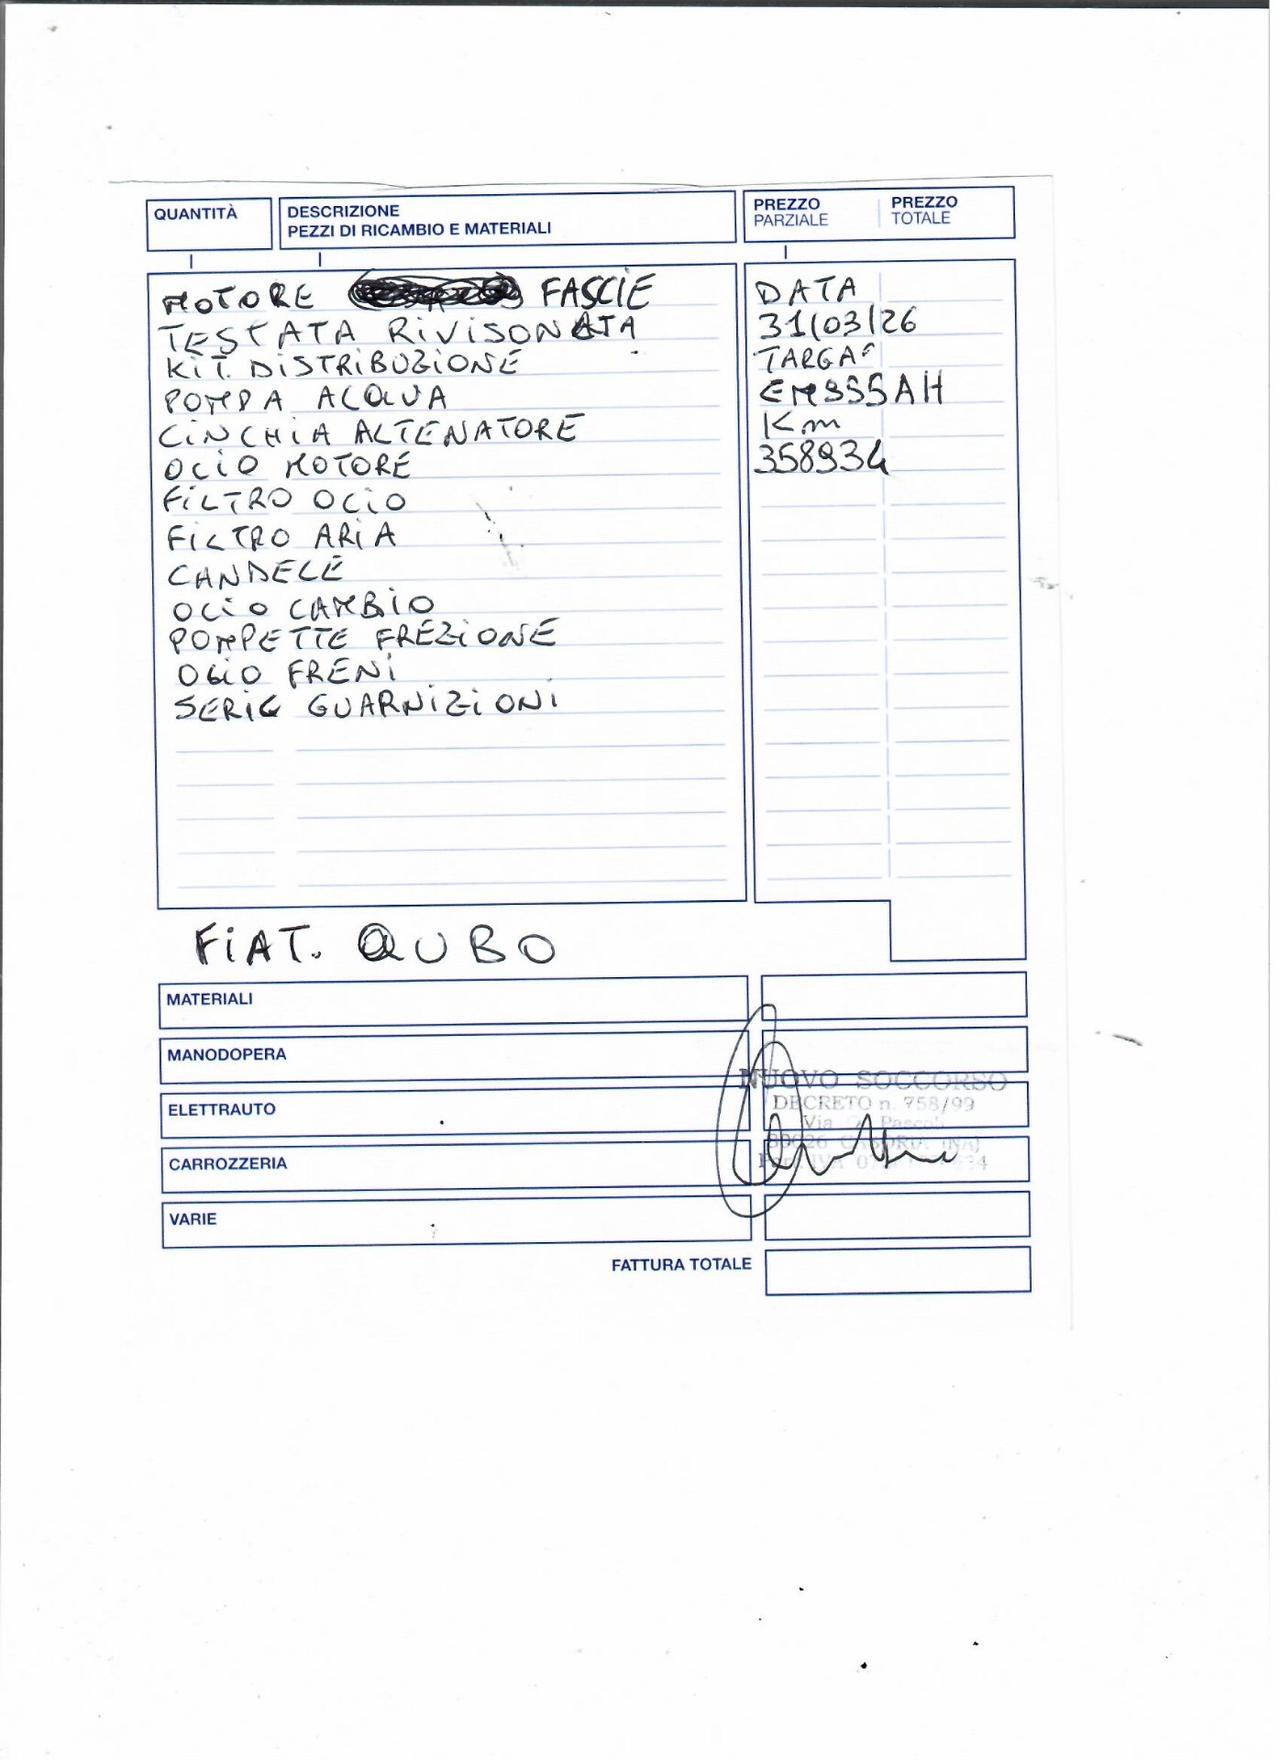 QUANTITÀ
DESCRIZIONE
PEZZI DI RICAMBIO E MATERIALI
PREZZO PARZIALE
PREZZO TOTALE
MOTORE FASCIE
TESTATA RIVISONATA
KIT. DISTRIBUZIONE
POMPA ACQUA
CINCHIA ALTENATORE
OLIO MOTORE
FILTRO OLIO
FILTRO ARIA
CANDELE
OLIO CAMBIO
POMPETTE FREZIONE
OLIO FRENI
SERIE GUARNIZIONI
DATA
31/03/26
TARGA
Km
358934
FIAT. QUBO
MATERIALI
MANODOPERA
ELETTRAUTO
CARROZZERIA
VARIE
NUOVO SOCCORSO
DECRETO n. 758/99
Via Pascoli
80026 CASORIA (NA)
Part. IVA
FATTURA TOTALE